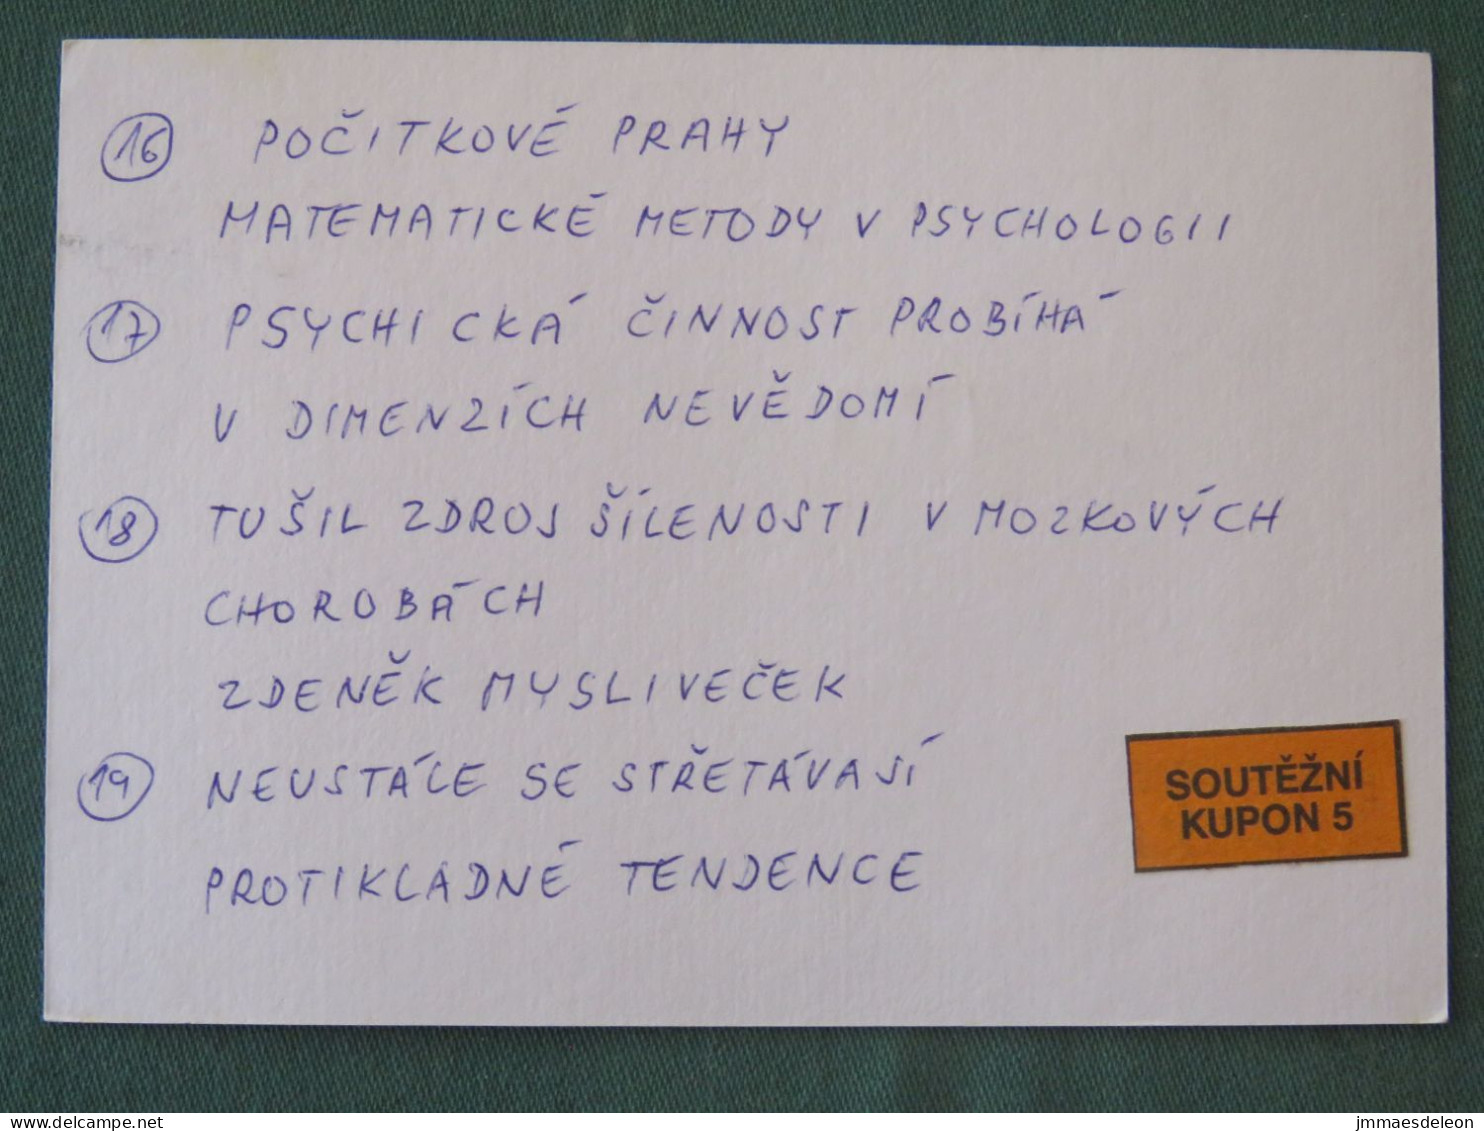 16 POČITKOVÉ PRAHY
MATEMATICKÉ METODY V PSYCHOLOGII
17 PSYCHICKÁ ČINNOST PROBÍHÁ
V DIMENZÍCH NEVĚDOMÍ
18 TUŠIL ZDROJ ŠÍLENOSTI V MOZKOVÝCH
CHOROBÁCH
ZDENĚK MYSLIVEČEK
19 NEUSTÁLE SE STŘETÁVAJÍ
PROTIKLADNÉ TENDENCE
SOUTĚŽNÍ
KUPON 5
delcampe.net
jmmaesdeleon